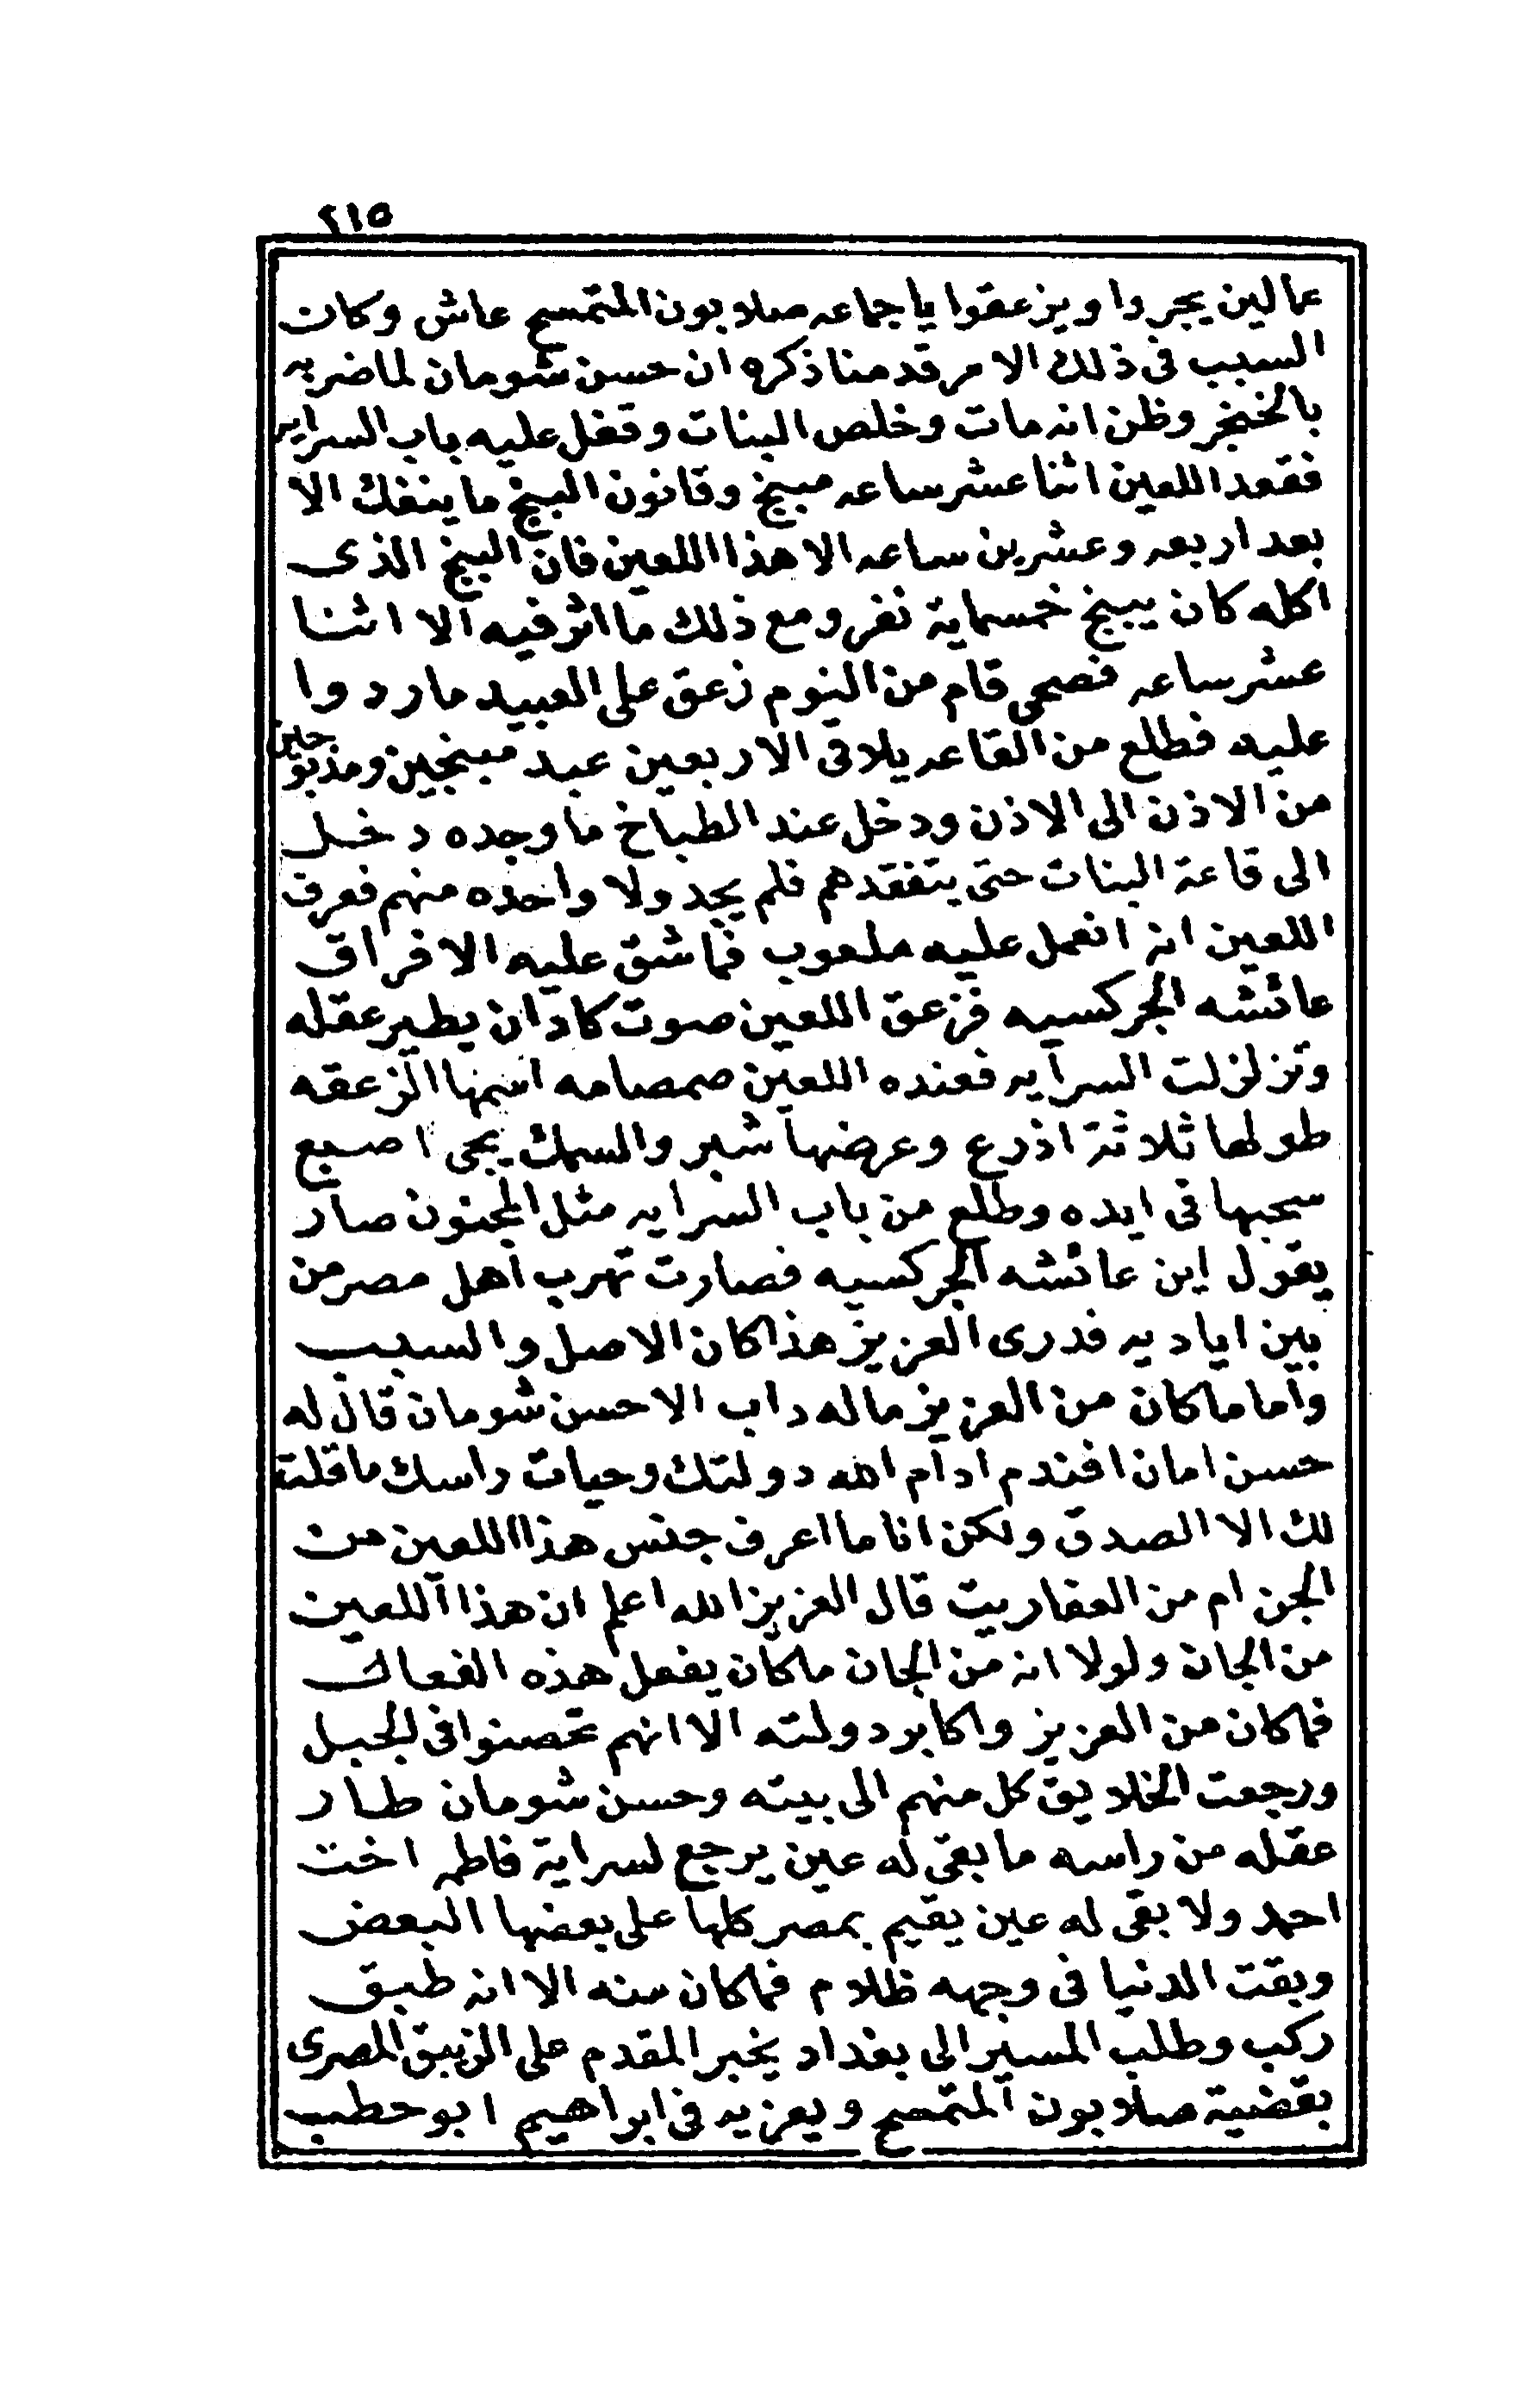 ٢١٥
عمالين يجروا ويزعقوا ياجماعه صلابون المتمسح عاش وكان
السبب فى ذلك الامر قدمنا ذكره ان حسن شومان لما ضربه
بالخنجر وظن انه مات وخلص البنات وقفل عليه باب السرايه
فقعد اللعين اثنا عشر ساعه مبنج وقانون البنج ما ينفك الا
بعد اربعه وعشرين ساعه الا هذا اللعين فان البنج الذى
اكله كان يبنج خمسماية نفر ومع ذلك ما اثر فيه الا اثنا
عشر ساعه فصحى قام من النوم زعق على العبيد ما ردوا
عليه فطلع من القاعه يلاقى الاربعين عبد مبنجين ومذبوحين
من الاذن الى الاذن ودخل عند الطباخ ما وجده دخل
الى قاعة البنات حتى يتفقدهم فلم يجد ولا واحده منهم فعرف
اللعين انه انعمل عليه ملعوب فما شق عليه الا فراق
عائشه الجركسيه فزعق اللعين صوت كاد ان يطير عقله
وتزلزلت السرايه فعنده اللعين صمصامه اسمها الزعقه
طولها ثلاثة اذرع وعرضها شبر والسمك يجى اصبع
سحبها فى ايده وطلع من باب السرايه مثل المجنون صار
يقول اين عائشه الجركسيه فصارت تهرب اهل مصر من
بين اياديه فدرى العزيز هذا كان الاصل والسبب
واما ماكان من العزيز ماله داب الا حسن شومان قال له
حسن امان افندم ادام الله دولتك وحيات راسك ما قلت
لك الا الصدق ولكن انا ما اعرف جنس هذا اللعين من
الجن ام من العفاريت قال العزيز الله اعلم ان هذا اللعين
من الجان ولولا انه من الجان ماكان يفعل هذه الفعال
فماكان من العزيز واكابر دولته الا انهم تحصنوا فى الجبل
ورجعت الخلايق كل منهم الى بيته وحسن شومان طار
عقله من راسه ما بقى له عين يرجع لسراية فاطمه اخت
احمد ولا بقى له عين يقيم بمصر كلها على بعضها البعض
وبقت الدنيا فى وجهه ظلام فماكان منه الا انه طبق
ركب وطلب المسير الى بغداد يخبر المقدم على الزيبق المصرى
بقضية صلابون المتمسح ويعزيه فى ابراهيم ابو حطب